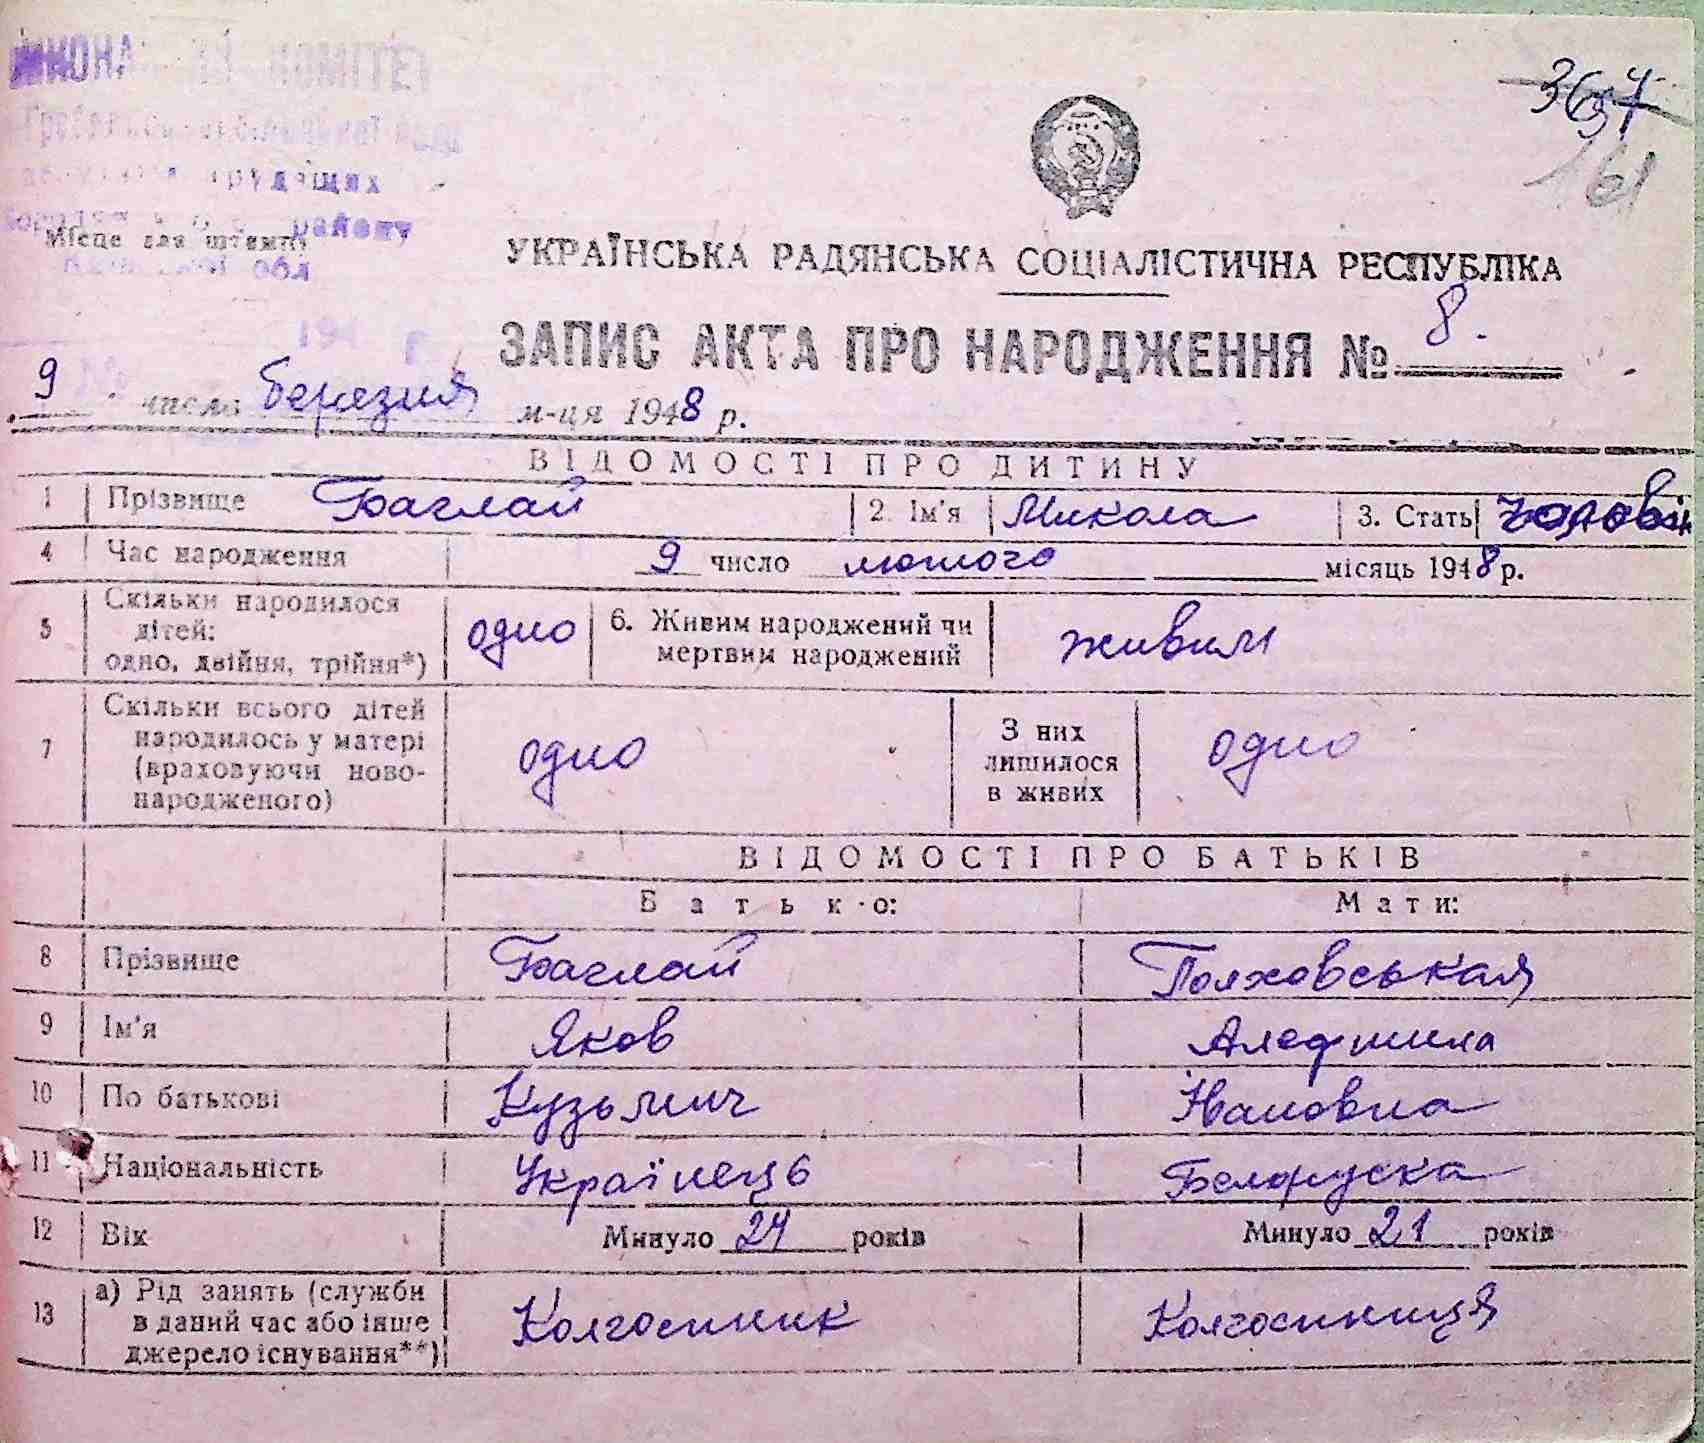 КОМІТЕТ
трудящих
району
Місце для штемпу
обл
3657
161
УКРАЇНСЬКА РАДЯНСЬКА СОЦІАЛІСТИЧНА РЕСПУБЛІКА
194 р.
ЗАПИС АКТА ПРО НАРОДЖЕННЯ № 8.
9 числа березня м-ця 1948 р.
ВІДОМОСТІ ПРО ДИТИНУ
1 Прізвище Баглай 2. Ім'я Микола 3. Стать чолові
4 Час народження 9 число лютого місяць 1948 р.
5 Скільки народилося дітей: одно, двійня, трійня*) одно 6. Живим народжений чи мертвим народжений живим
7 Скільки всього дітей народилось у матері (враховуючи ново-народженого) одно З них лишилося в живих одно
ВІДОМОСТІ ПРО БАТЬКІВ
Батько: Мати:
8 Прізвище Баглай Поляховськая
9 Ім'я Яков
10 По батькові Кузьмич Івановна
11 Національність Українець Белоруска
12 Вік Минуло 24 років Минуло 21 років
13 а) Рід занять (служби в даний час або інше джерело існування**) Колгоспник Колгоспниця